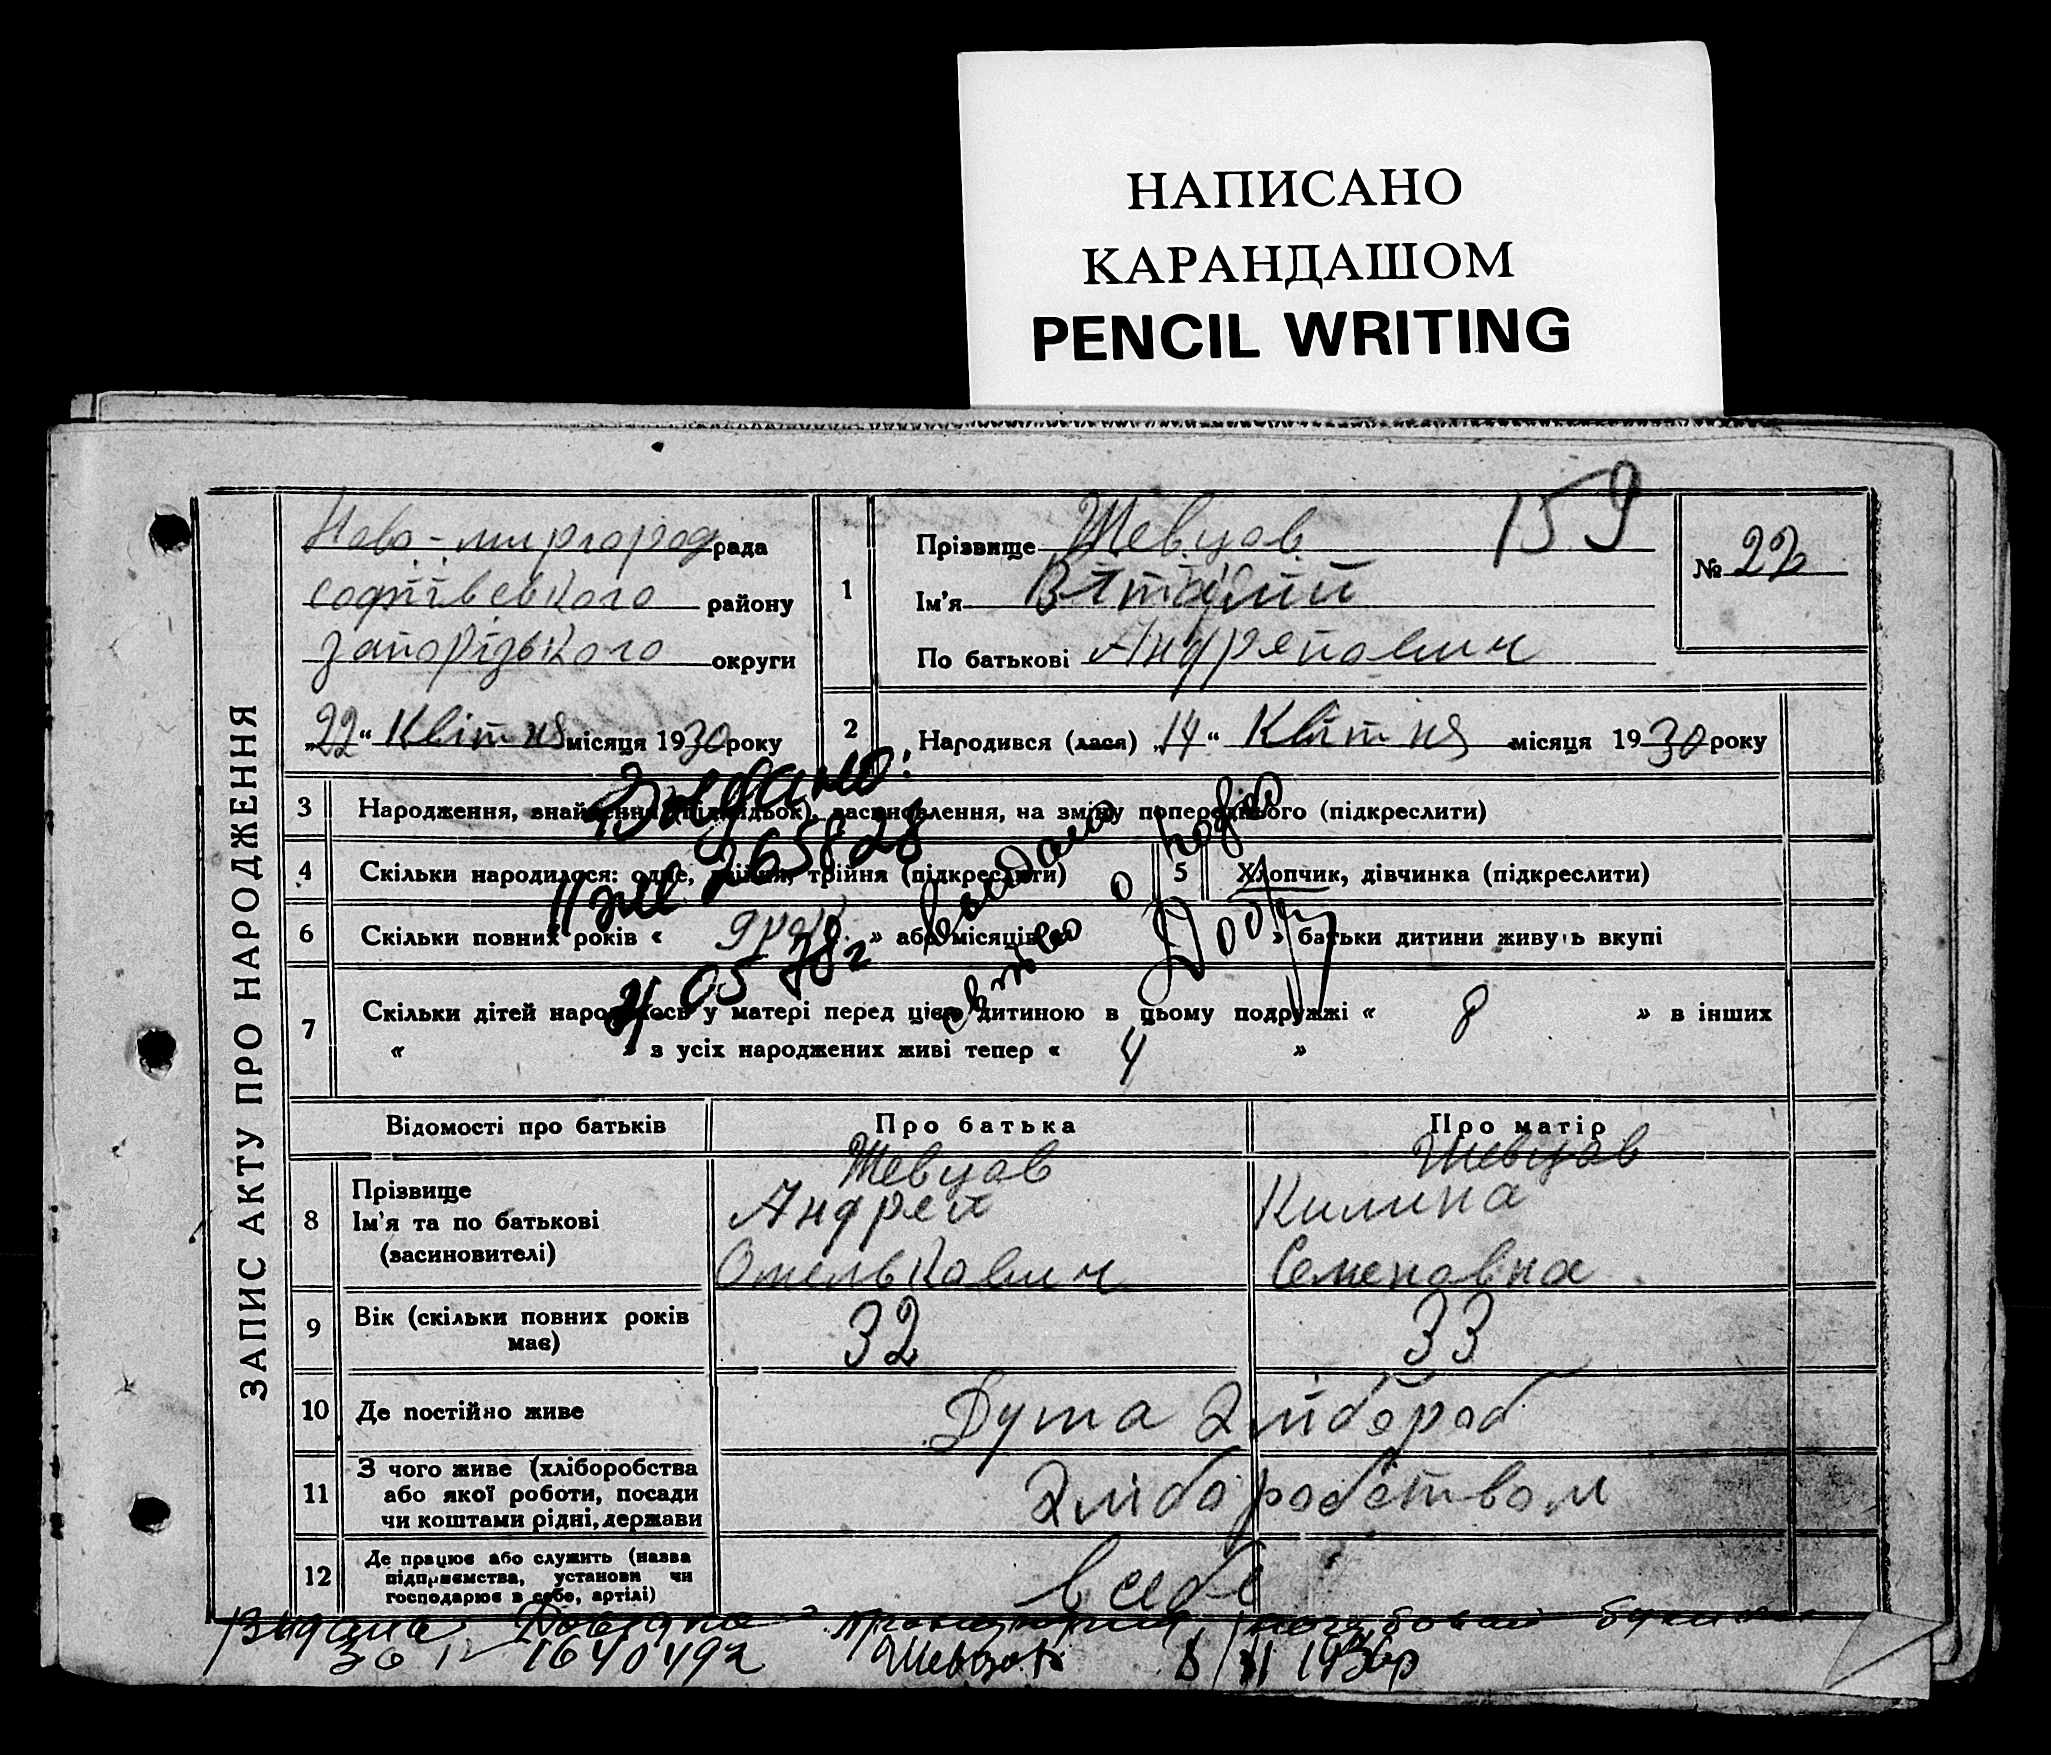 НАПИСАНО
КАРАНДАШОМ
PENCIL WRITING
159
ЗАПИС АКТУ ПРО НАРОДЖЕННЯ
Ново-миргород рада
софиївського району
запорізького округи
„22“ Квітня місяця 1930 року
1 Прізвище Шевцов
Ім'я Віталий
По батькові Андреевич
№ 22
2 Народився (лася) „14“ Квітня місяця 1930 року
3 Народження, внайдення (підкидьок), васиновлення, на зміну попереднього (підкреслити)
4 Скільки народилося: одне, двійня, трійня (підкреслити)
5 Хлопчик, дівчинка (підкреслити)
6 Скільки повних років « » або місяців » батьки дитини живуть вкупі
7 Скільки дітей народилось у матері перед цією дитиною в цьому подружжі « 8 » в інших
« » з усіх народжених живі тепер « 4 »
Видано:
265828
05 78г
Відомості про батьків Про батька Про матір
8 Прізвище Шевцов Шевцов
Ім'я та по батькові Андрей Килина
(васиновителі) Омелькович Семеновна
9 Вік (скільки повних років має) 32 33
10 Де постійно живе
11 З чого живе (хліборобства або якої роботи, посади чи коштами рідні, держави Хліборобством
12 Де працює або служить (назва підприємства, установи чи господарює в себе, артілі) в себе
Шевцов